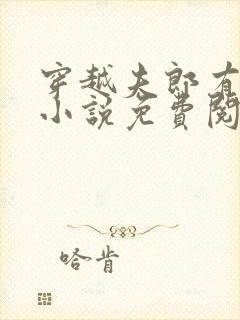 穿越夫郎有
小説免費閱
哈肯